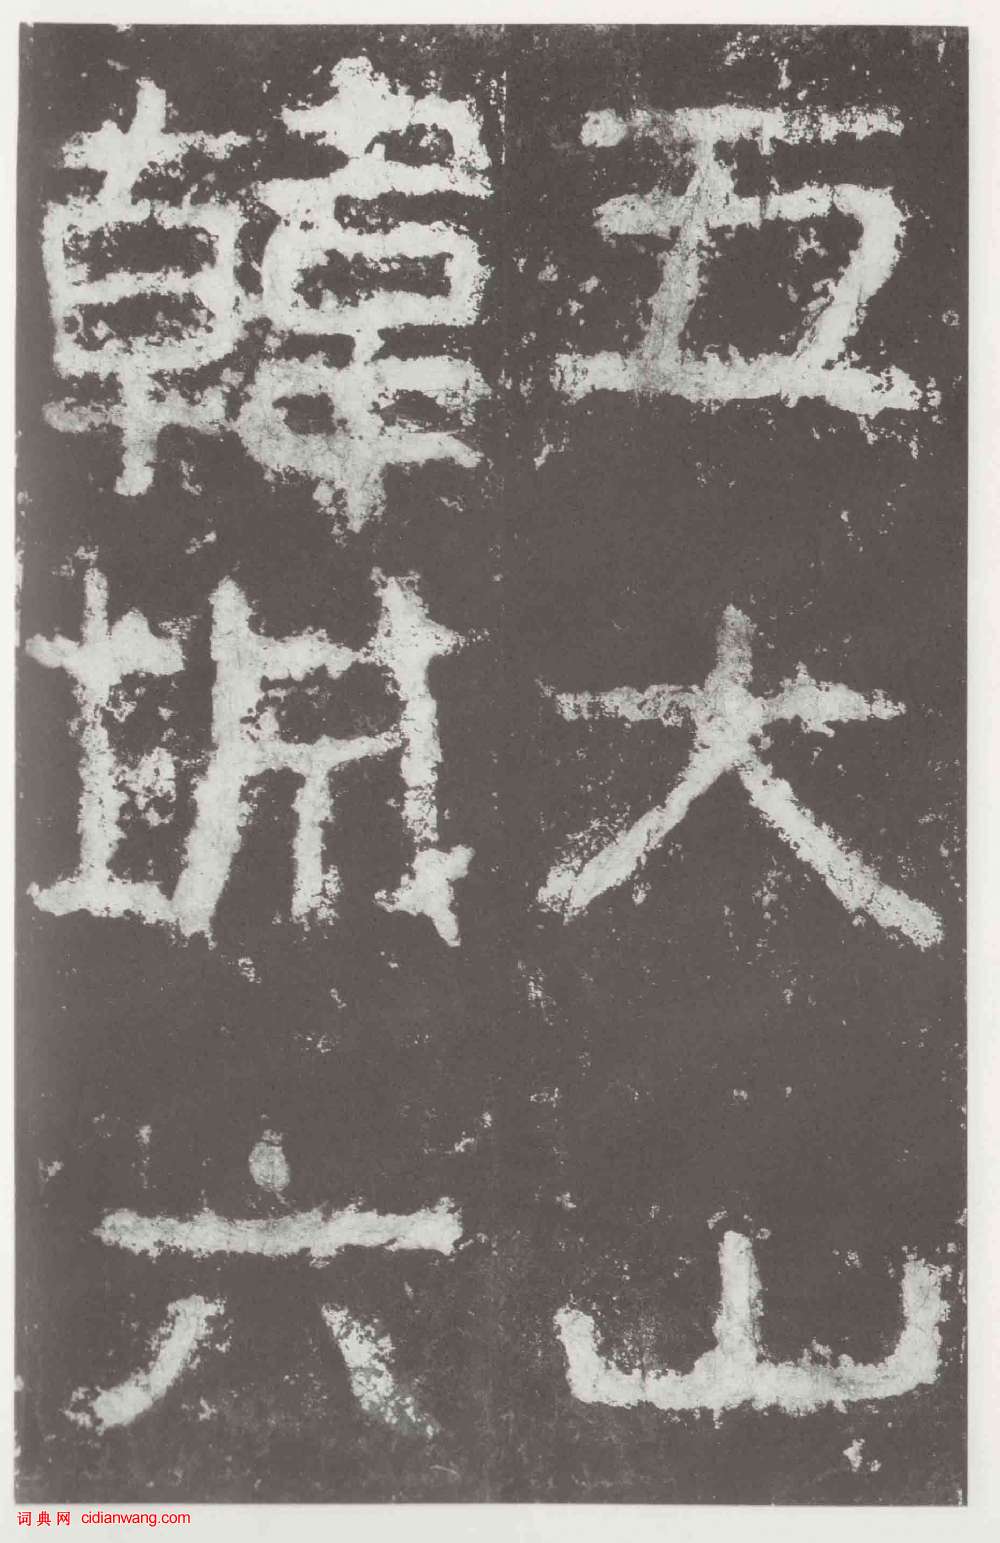 五大山
韓城六
词典网 cidianwang.com